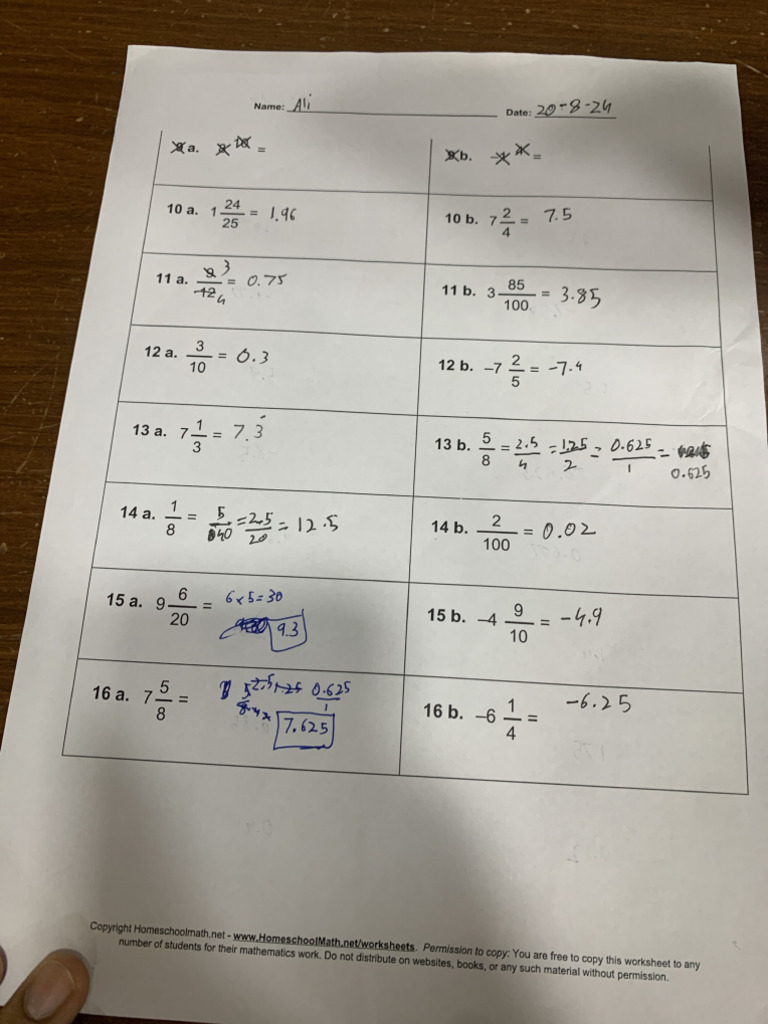 Name: Ali Date: 20-8-24
a. =
b. =
10 a. 1 24/25 = 1.96
10 b. 7 2/4 = 7.5
11 a. 9/12 3/4 = 0.75
11 b. 3 85/100 = 3.85
12 a. 3/10 = 0.3
12 b. –7 2/5 = -7.4
13 a. 7 1/3 = 7.3̇
13 b. 5/8 = 2.5/4 = 1.25/2 = 0.625/1 =
0.625
14 a. 1/8 = 5/40 = 2.5/20 = 12.5
14 b. 2/100 = 0.02
15 a. 9 6/20 = 6×5=30
9.3
15 b. –4 9/10 = -4.9
16 a. 7 5/8 = 5/8 2.5/4 1.25/2 0.625/1
7.625
16 b. –6 1/4 = -6.25
Copyright Homeschoolmath.net - www.HomeschoolMath.net/worksheets. Permission to copy: You are free to copy this worksheet to any
number of students for their mathematics work. Do not distribute on websites, books, or any such material without permission.